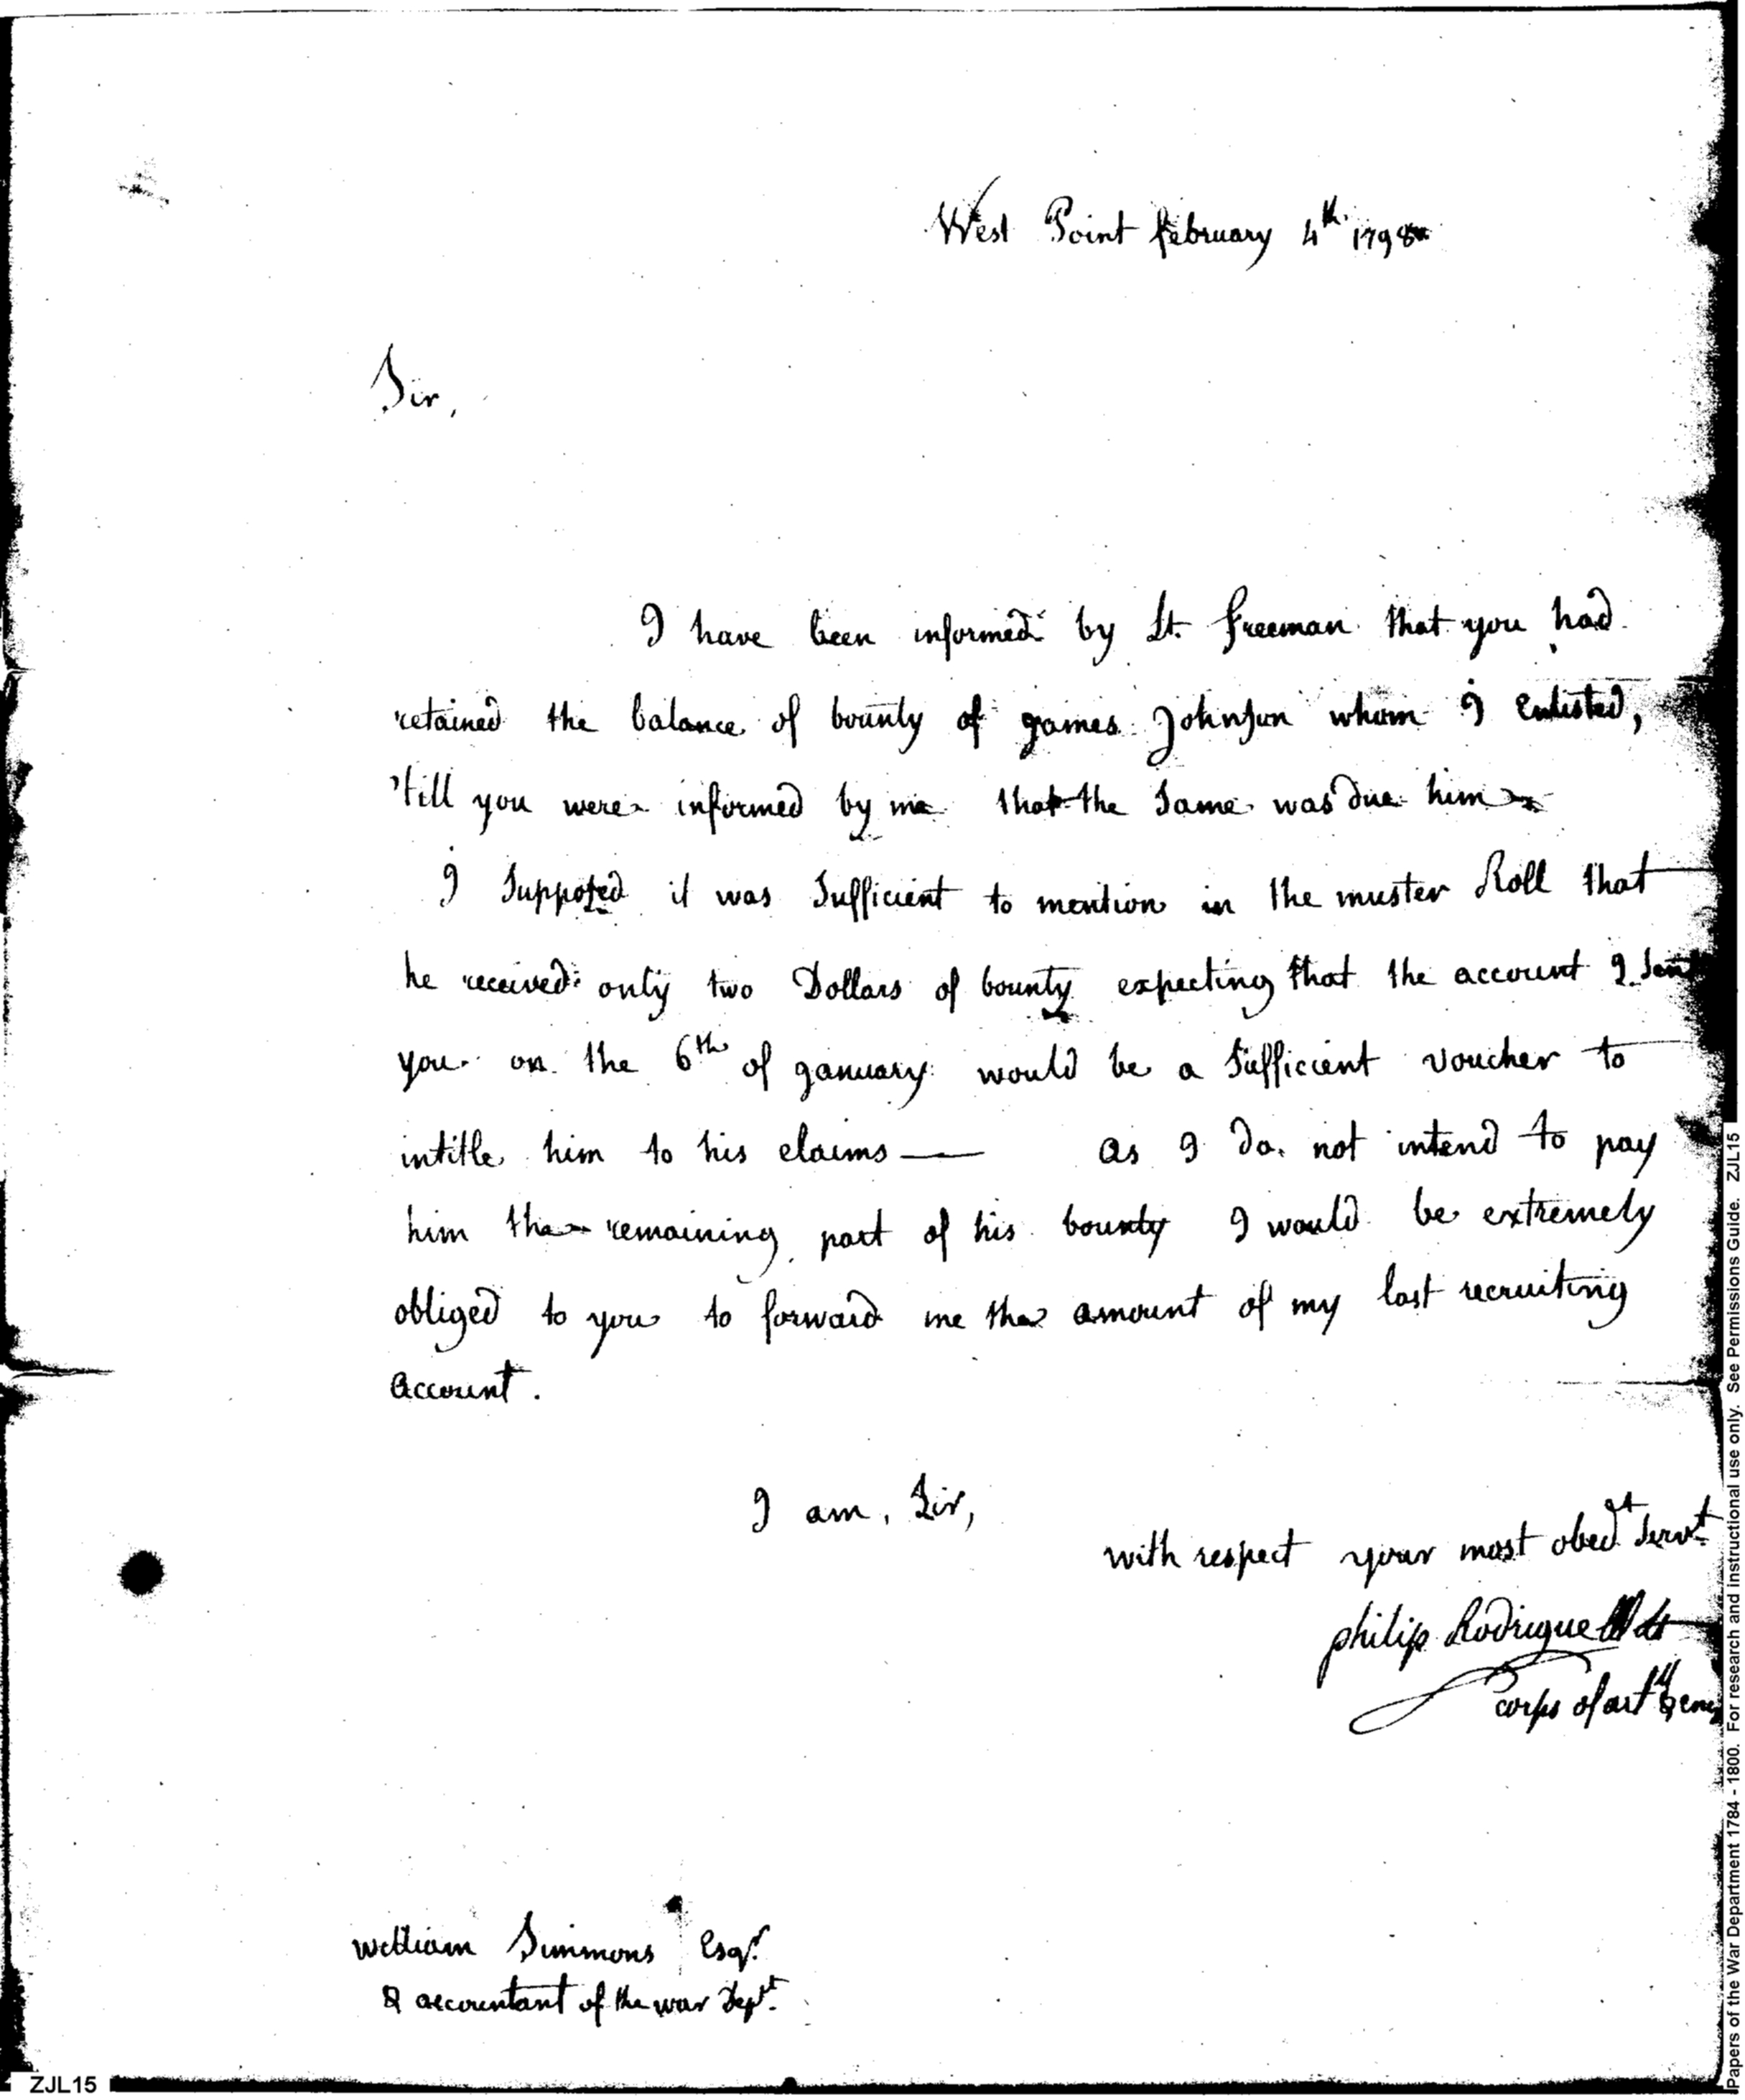 West Point february 4th 1798
Sir,
I have been informed by Lt. freeman that you had
retained the balance of bounty of games Johnson whom I Enlisted,
'till you were informed by me that the same was due him
I Supposed it was Sufficient to mention in the muster Roll that
he received only two Dollars of bounty expecting that the account I Sent
you on the 6th of ganuary would be a Sufficient voucher to
intitle him to his claims — as I do not intend to pay
him the remaining part of his bounty I would be extremely
obliged to you to forward me the amount of my last recruiting
account.
I am, Sir,
with respect your most obedt Servt
philip Rodrigue Lt
Corps of arty & eng
william Simmons Esqr.
& accountant of the war Dept.
ZJL15
Papers of the War Department 1784 - 1800. For research and instructional use only. See Permissions Guide. ZJL15